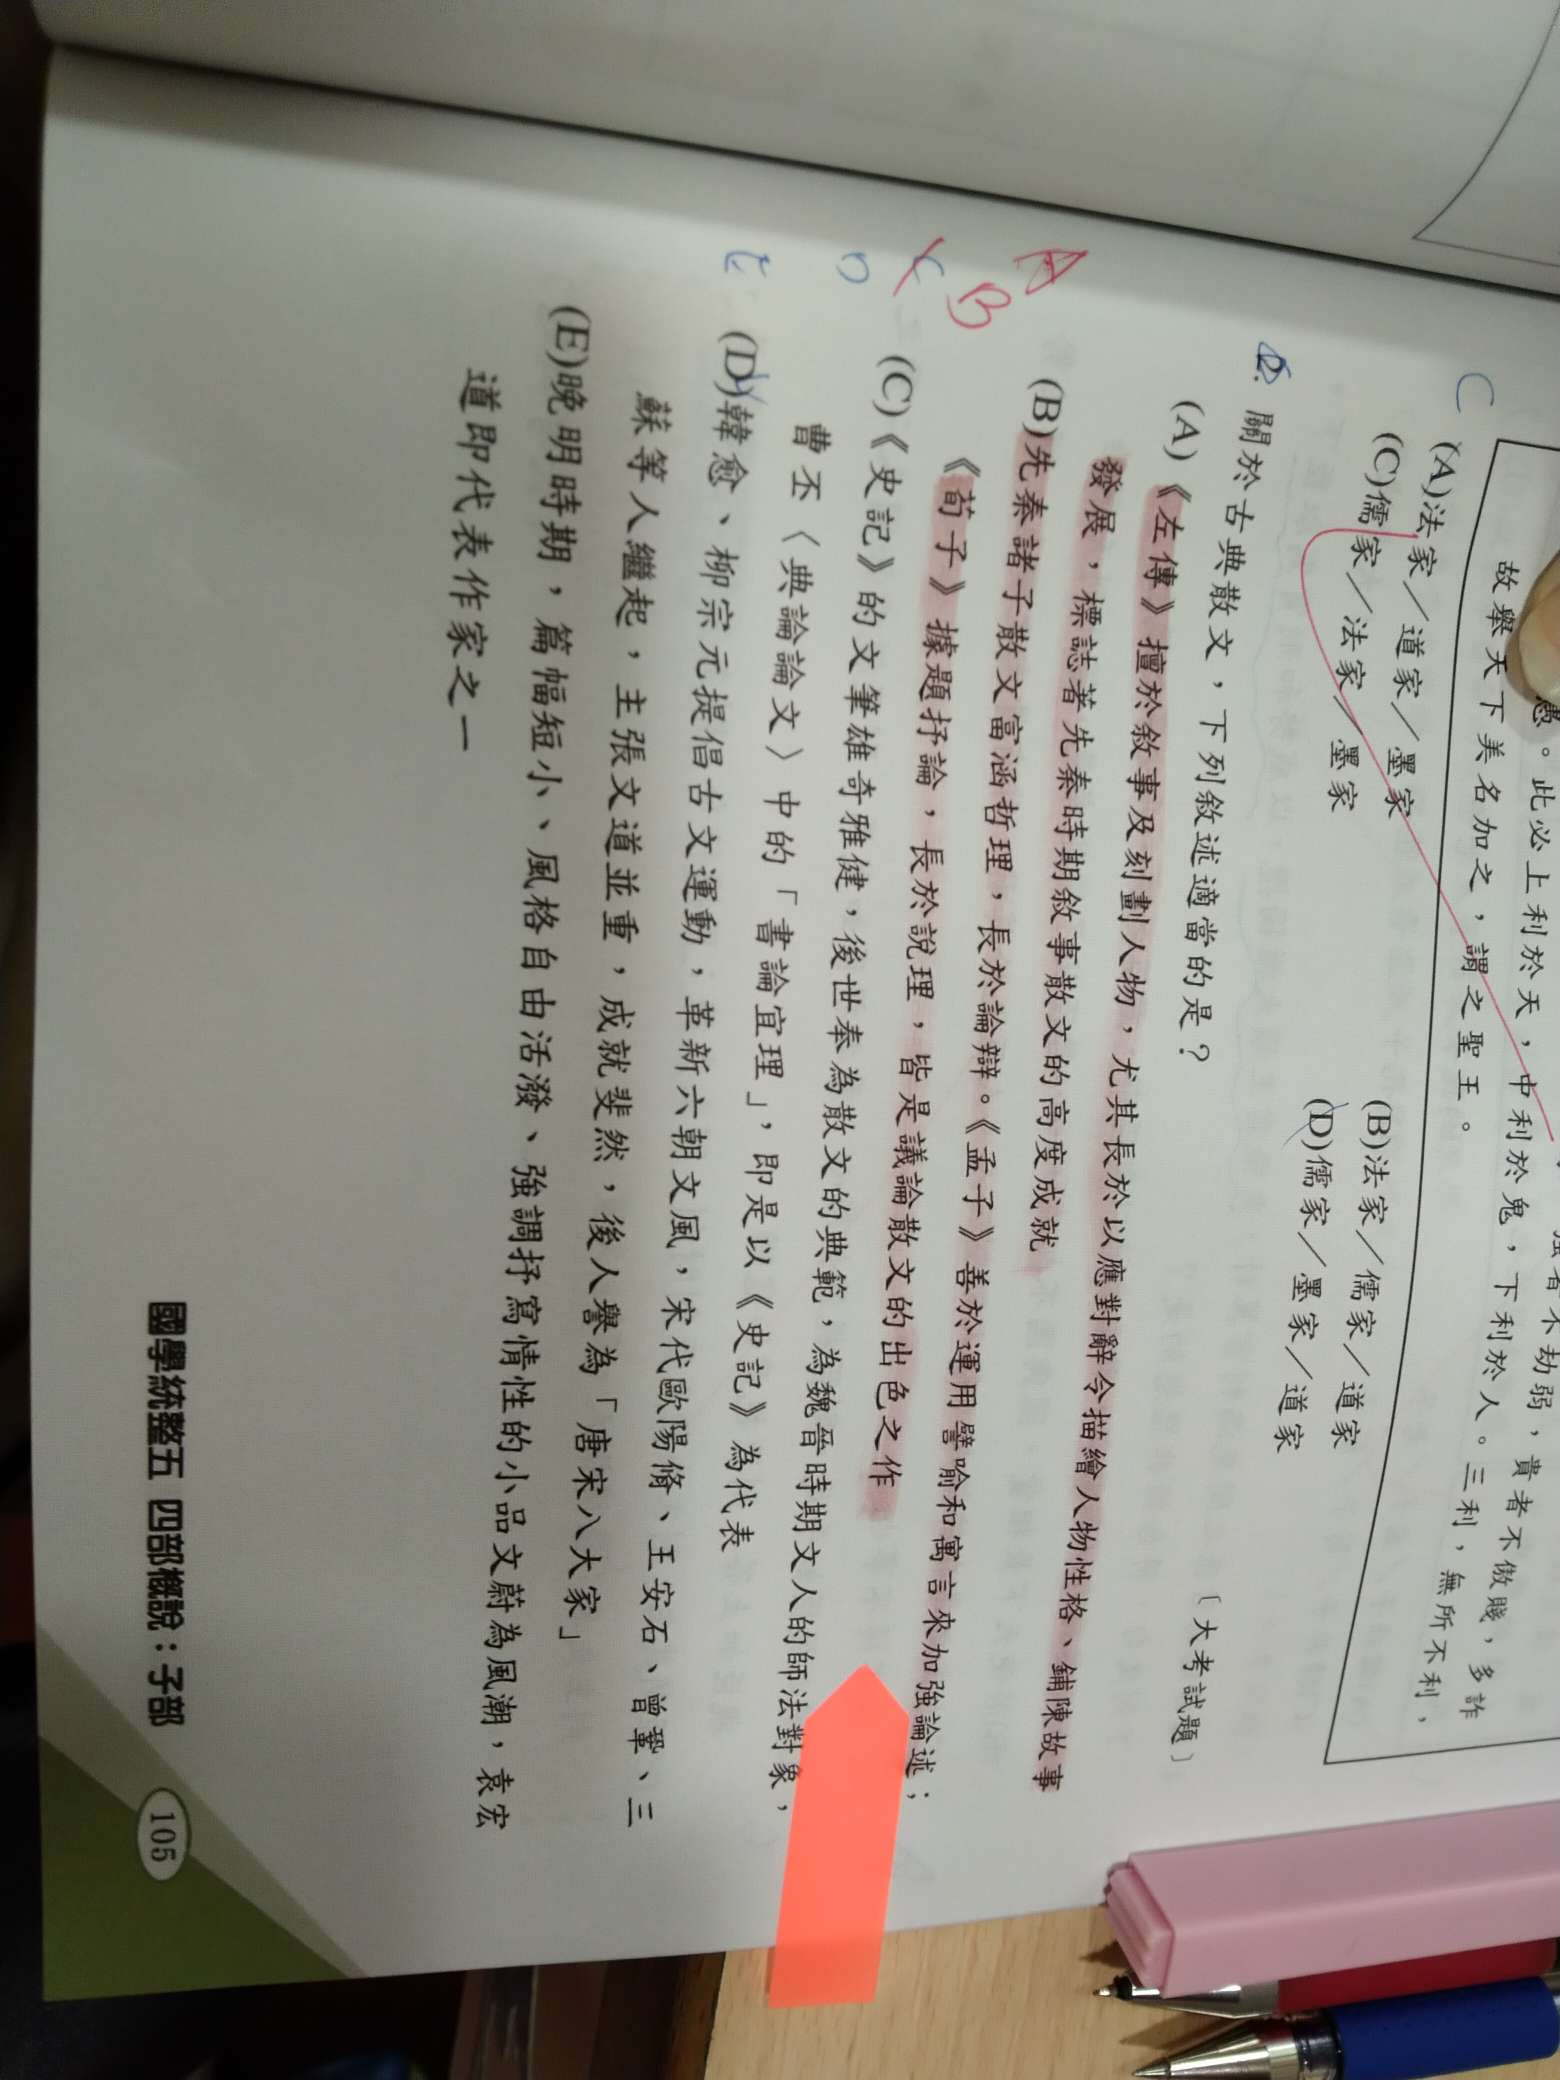 愚。此必上利於天，中利於鬼，下利於人。三利，無所不利，
故舉天下美名加之，謂之聖王。
強者不劫弱，貴者不傲賤，多詐
C
(A)法家／道家／墨家
(B)法家／儒家／道家
(C)儒家／法家／墨家
(D)儒家／墨家／道家
2. 關於古典散文，下列敘述適當的是？〔大考試題〕
(A)《左傳》擅於敘事及刻劃人物，尤其長於以應對辭令描繪人物性格、鋪陳故事
發展，標誌著先秦時期敘事散文的高度成就
(B)先秦諸子散文富涵哲理，長於論辯。《孟子》善於運用譬喻和寓言來加強論述；
《荀子》據題抒論，長於說理，皆是議論散文的出色之作
(C)《史記》的文筆雄奇雅健，後世奉為散文的典範，為魏晉時期文人的師法對象，
曹丕〈典論論文〉中的「書論宜理」，即是以《史記》為代表
(D)韓愈、柳宗元提倡古文運動，革新六朝文風，宋代歐陽脩、王安石、曾鞏、三
蘇等人繼起，主張文道並重，成就斐然，後人譽為「唐宋八大家」
(E)晚明時期，篇幅短小、風格自由活潑、強調抒寫情性的小品文蔚為風潮，袁宏
道即代表作家之一
A
B
C
D
E
國學統整五 四部概說：子部
105